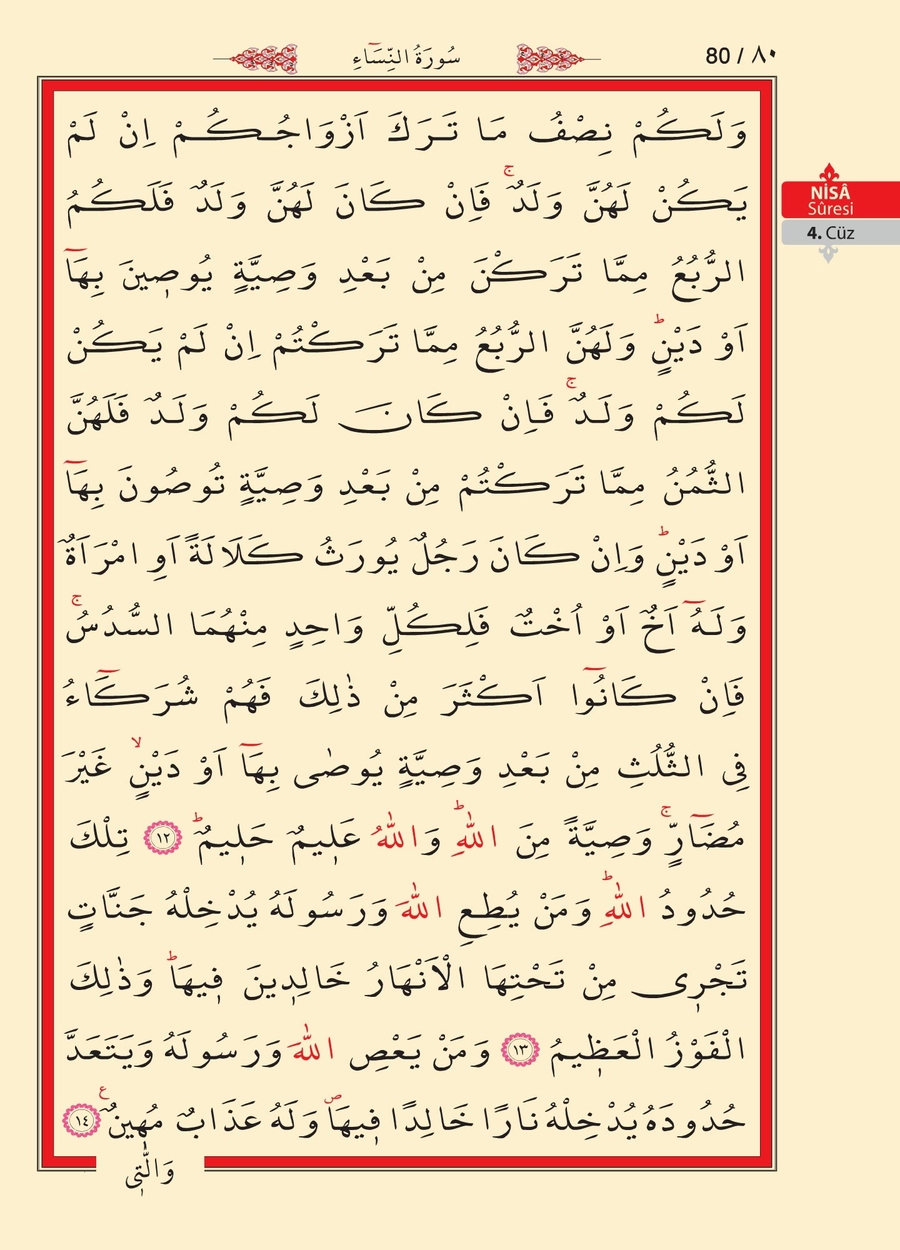 سُورَةُ النِّسَٓاءِ
80 / ٨٠
NİSÂ
Sûresi
4. Cüz
وَلَكُمْ نِصْفُ مَا تَرَكَ اَزْوَاجُكُمْ اِنْ لَمْ
يَكُنْ لَهُنَّ وَلَدٌۚ فَاِنْ كَانَ لَهُنَّ وَلَدٌ فَلَكُمُ
الرُّبُعُ مِمَّا تَرَكْنَ مِنْ بَعْدِ وَصِيَّةٍ يُوص۪ينَ بِهَٓا
اَوْ دَيْنٍۜ وَلَهُنَّ الرُّبُعُ مِمَّا تَرَكْتُمْ اِنْ لَمْ يَكُنْ
لَكُمْ وَلَدٌۚ فَاِنْ كَانَ لَكُمْ وَلَدٌ فَلَهُنَّ
الثُّمُنُ مِمَّا تَرَكْتُمْ مِنْ بَعْدِ وَصِيَّةٍ تُوصُونَ بِهَٓا
اَوْ دَيْنٍۜ وَاِنْ كَانَ رَجُلٌ يُورَثُ كَلَالَةً اَوِ امْرَاَةٌ
وَلَهُٓ اَخٌ اَوْ اُخْتٌ فَلِكُلِّ وَاحِدٍ مِنْهُمَا السُّدُسُۚ
فَاِنْ كَانُٓوا اَكْثَرَ مِنْ ذٰلِكَ فَهُمْ شُرَكَٓاءُ
فِي الثُّلُثِ مِنْ بَعْدِ وَصِيَّةٍ يُوصٰى بِهَٓا اَوْ دَيْنٍۙ غَيْرَ
مُضَٓارٍّۚ وَصِيَّةً مِنَ اللّٰهِۜ وَاللّٰهُ عَل۪يمٌ حَل۪يمٌۜ ﴿١٢﴾ تِلْكَ
حُدُودُ اللّٰهِۜ وَمَنْ يُطِعِ اللّٰهَ وَرَسُولَهُ يُدْخِلْهُ جَنَّاتٍ
تَجْر۪ي مِنْ تَحْتِهَا الْاَنْهَارُ خَالِد۪ينَ ف۪يهَاۜ وَذٰلِكَ
الْفَوْزُ الْعَظ۪يمُ ﴿١٣﴾ وَمَنْ يَعْصِ اللّٰهَ وَرَسُولَهُ وَيَتَعَدَّ
حُدُودَهُ يُدْخِلْهُ نَارًا خَالِدًا ف۪يهَاۖ وَلَهُ عَذَابٌ مُه۪ينٌ۟ ﴿١٤﴾
وَالّٰت۪ي